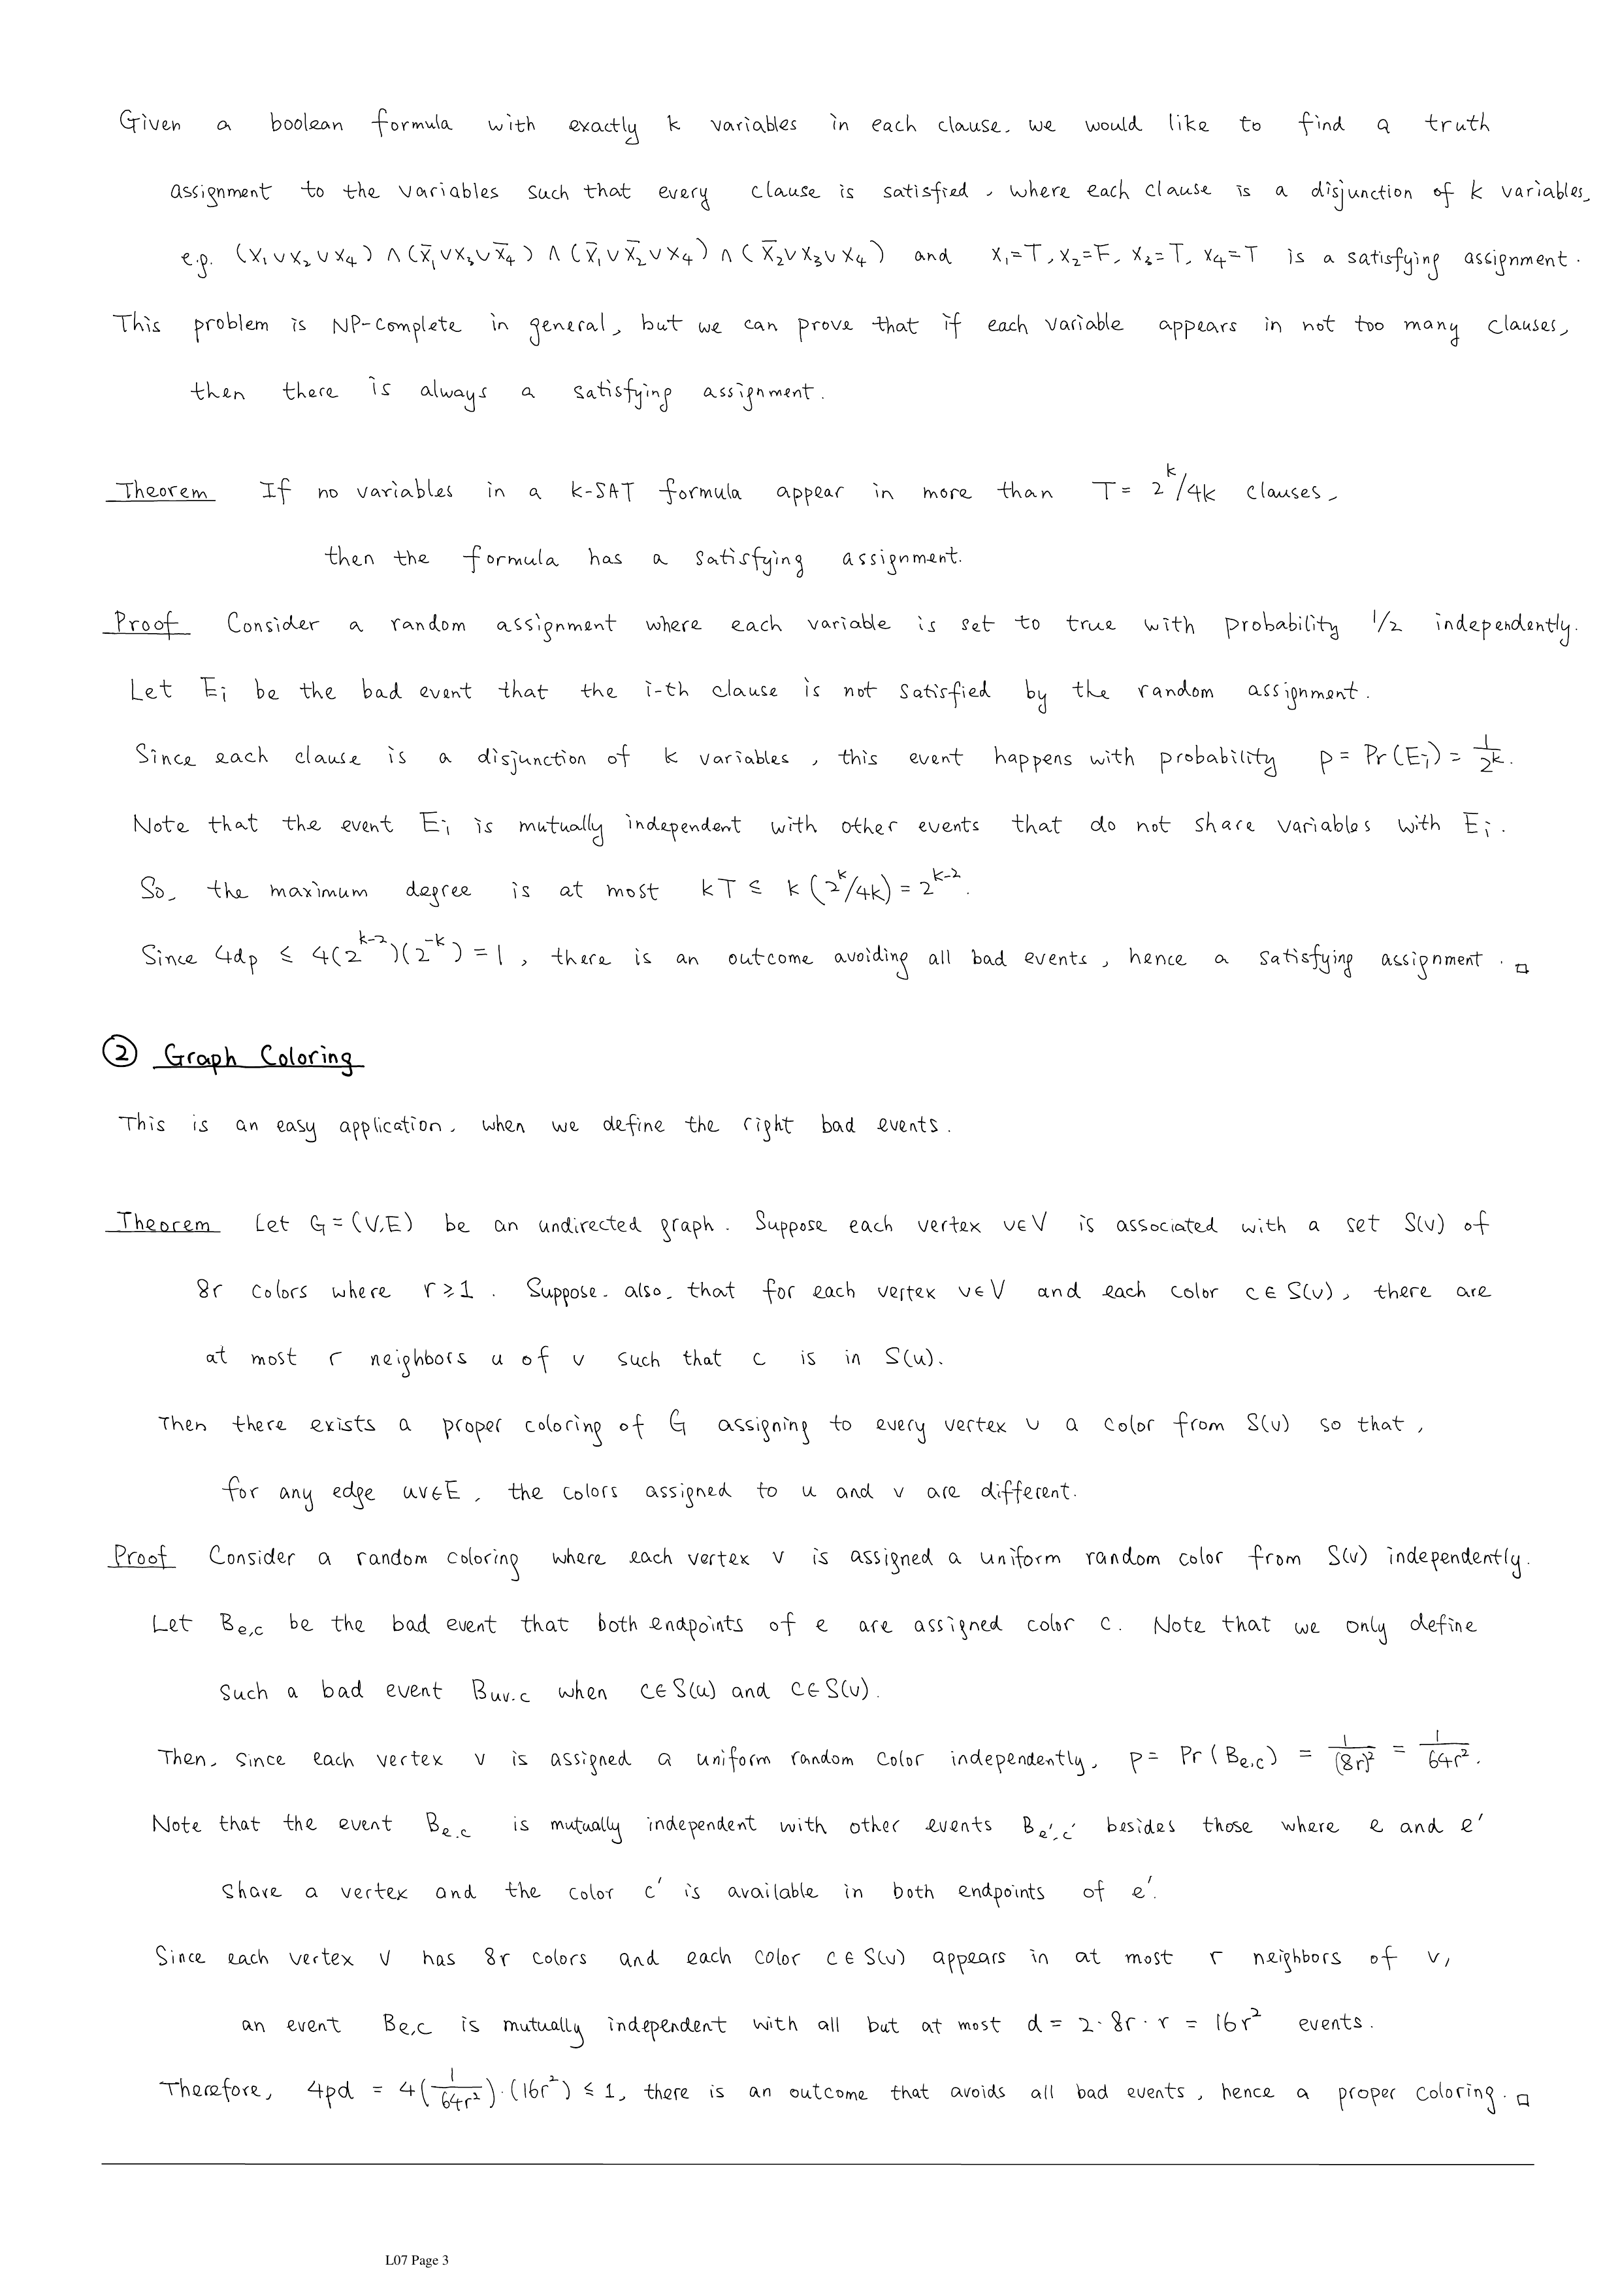 Given a boolean formula with exactly k variables in each clause, we would like to find a truth
assignment to the variables such that every clause is satisfied, where each clause is a disjunction of k variables,
e.g. (x₁∨x₂∨x₄) ∧ (x̄₁∨x₃∨x̄₄) ∧ (x̄₁∨x̄₂∨x₄) ∧ (x̄₂∨x₃∨x₄) and x₁=T, x₂=F, x₃=T, x₄=T is a satisfying assignment.
This problem is NP-complete in general, but we can prove that if each variable appears in not too many clauses,
then there is always a satisfying assignment.
Theorem If no variables in a k-SAT formula appear in more than T = 2^k/4k clauses,
then the formula has a satisfying assignment.
Proof Consider a random assignment where each variable is set to true with probability 1/2 independently.
Let Eᵢ be the bad event that the i-th clause is not satisfied by the random assignment.
Since each clause is a disjunction of k variables, this event happens with probability p = Pr(Eᵢ) = 1/2^k.
Note that the event Eᵢ is mutually independent with other events that do not share variables with Eᵢ.
So, the maximum degree is at most kT ≤ k(2^k/4k) = 2^(k-2).
Since 4dp ≤ 4(2^(k-2))(2^(-k)) = 1, there is an outcome avoiding all bad events, hence a satisfying assignment. □
② Graph Coloring
This is an easy application, when we define the right bad events.
Theorem Let G=(V,E) be an undirected graph. Suppose each vertex v∈V is associated with a set S(v) of
8r colors where r≥1. Suppose, also, that for each vertex v∈V and each color c∈S(v), there are
at most r neighbors u of v such that c is in S(u).
Then there exists a proper coloring of G assigning to every vertex v a color from S(v) so that,
for any edge uv∈E, the colors assigned to u and v are different.
Proof Consider a random coloring where each vertex v is assigned a uniform random color from S(v) independently.
Let B_{e,c} be the bad event that both endpoints of e are assigned color c. Note that we only define
such a bad event B_{uv,c} when c∈S(u) and c∈S(v).
Then, since each vertex v is assigned a uniform random color independently, p = Pr(B_{e,c}) = 1/(8r)² = 1/64r².
Note that the event B_{e,c} is mutually independent with other events B_{e',c'} besides those where e and e'
share a vertex and the color c' is available in both endpoints of e'.
Since each vertex v has 8r colors and each color c∈S(v) appears in at most r neighbors of v,
an event B_{e,c} is mutually independent with all but at most d = 2·8r·r = 16r² events.
Therefore, 4pd = 4(1/64r²)·(16r²) ≤ 1, there is an outcome that avoids all bad events, hence a proper coloring. □
L07 Page 3